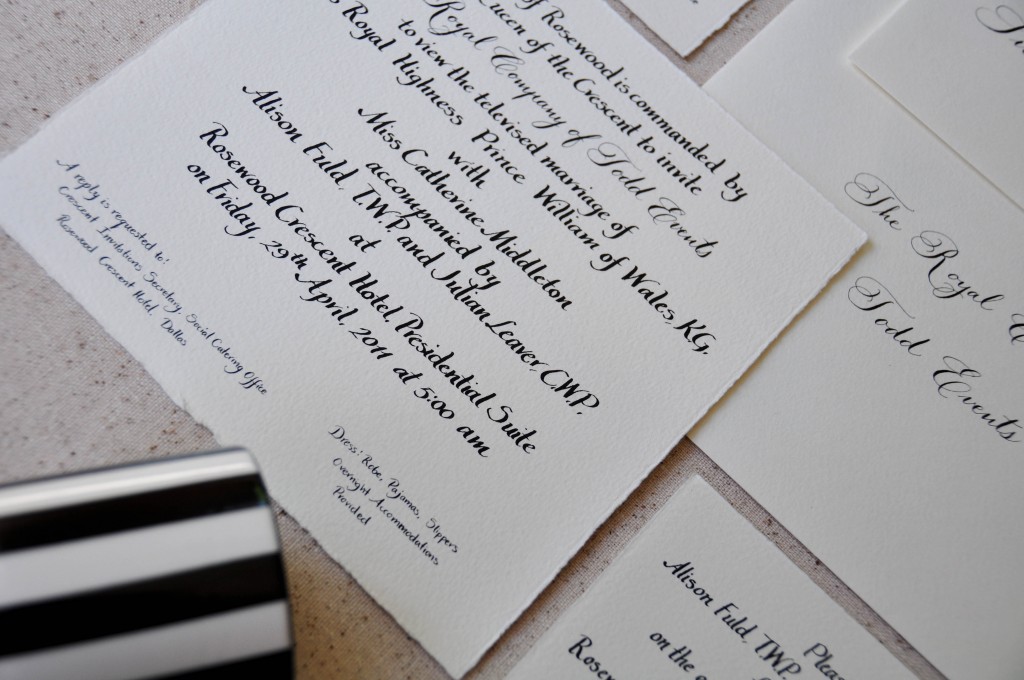 of Rosewood is commanded by
Queen of the Crescent to invite
Royal Company of Todd Events
to view the televised marriage of
Royal Highness Prince William of Wales, KG,
with
Miss Catherine Middleton
accompanied by
Alison Fuld, TWP and Julian Leaver, CWP,
at
Rosewood Crescent Hotel, Presidential Suite
on Friday, 29th April, 2011 at 5:00 am
A reply is requested to:
Crescent Invitations Secretary, Social Catering Office
Rosewood Crescent Hotel, Dallas
Dress: Robe, Pajamas, Slippers
Overnight Accommodations
Provided
The Royal
Todd Events
Pleas
Alison Fuld, TWP,
on the
Rosew